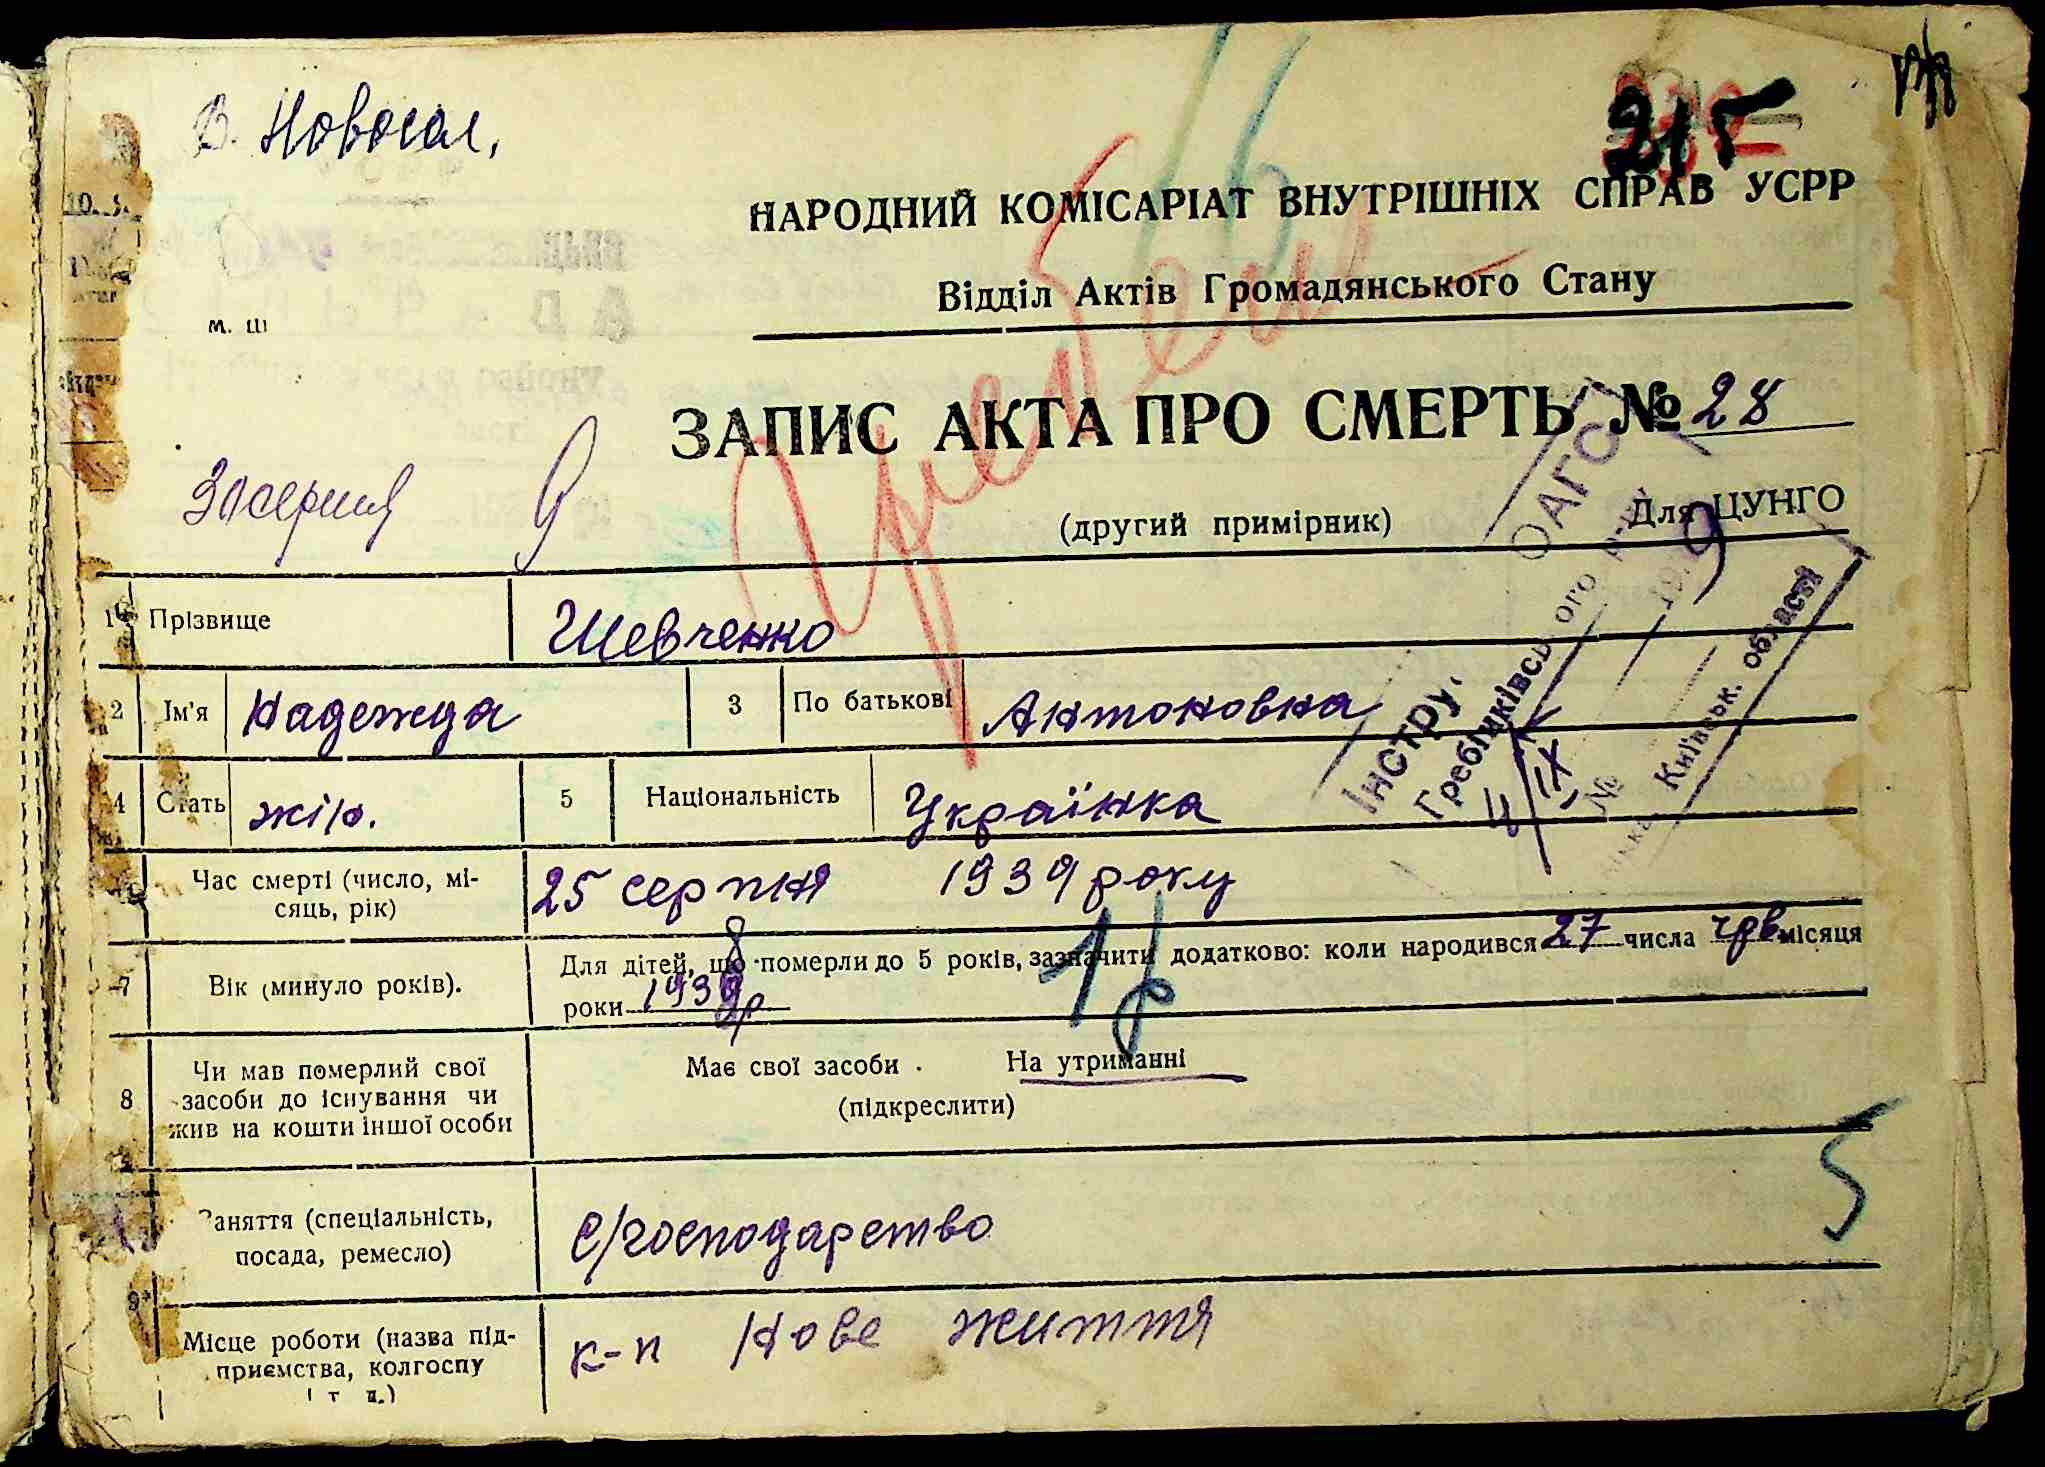 В. Новосел.
215
НАРОДНИЙ КОМІСАРІАТ ВНУТРІШНІХ СПРАВ УСРР
Відділ Актів Громадянського Стану
м. Ш
ЗАПИС АКТА ПРО СМЕРТЬ № 28
(другий примірник) Для ЦУНГО
Зпсерпня 9
1 Прізвище Шевченко
2 Ім'я Надежда 3 По батькові Антоновна
4 Стать жін. 5 Національність Українка
Інстру. ОАГС
Гребінківсь ого р-ну
№ 19 9
Київськ. області
4/IX
Час смерті (число, мі-
сяць, рік) 25 серпня 1939 року
7 Вік (минуло років). Для дітей, що померли до 5 років, зазначити додатково: коли народився 27 числа місяця
роки 1938 р 1р
8 Чи мав померлий свої
засоби до існування чи
жив на кошти іншої особи
Має свої засоби . На утриманні
(підкреслити)
5
Заняття (спеціальність,
посада, ремесло) с/господарство
9
Місце роботи (назва під-
приємства, колгоспу
і т п.) к-п Нове життя